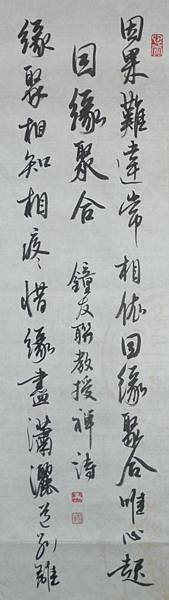 因果難違常相依因緣聚合唯心起
因緣聚合 鐘友聯教授禪詩
緣聚相知相疼惜緣盡瀟灑道別離